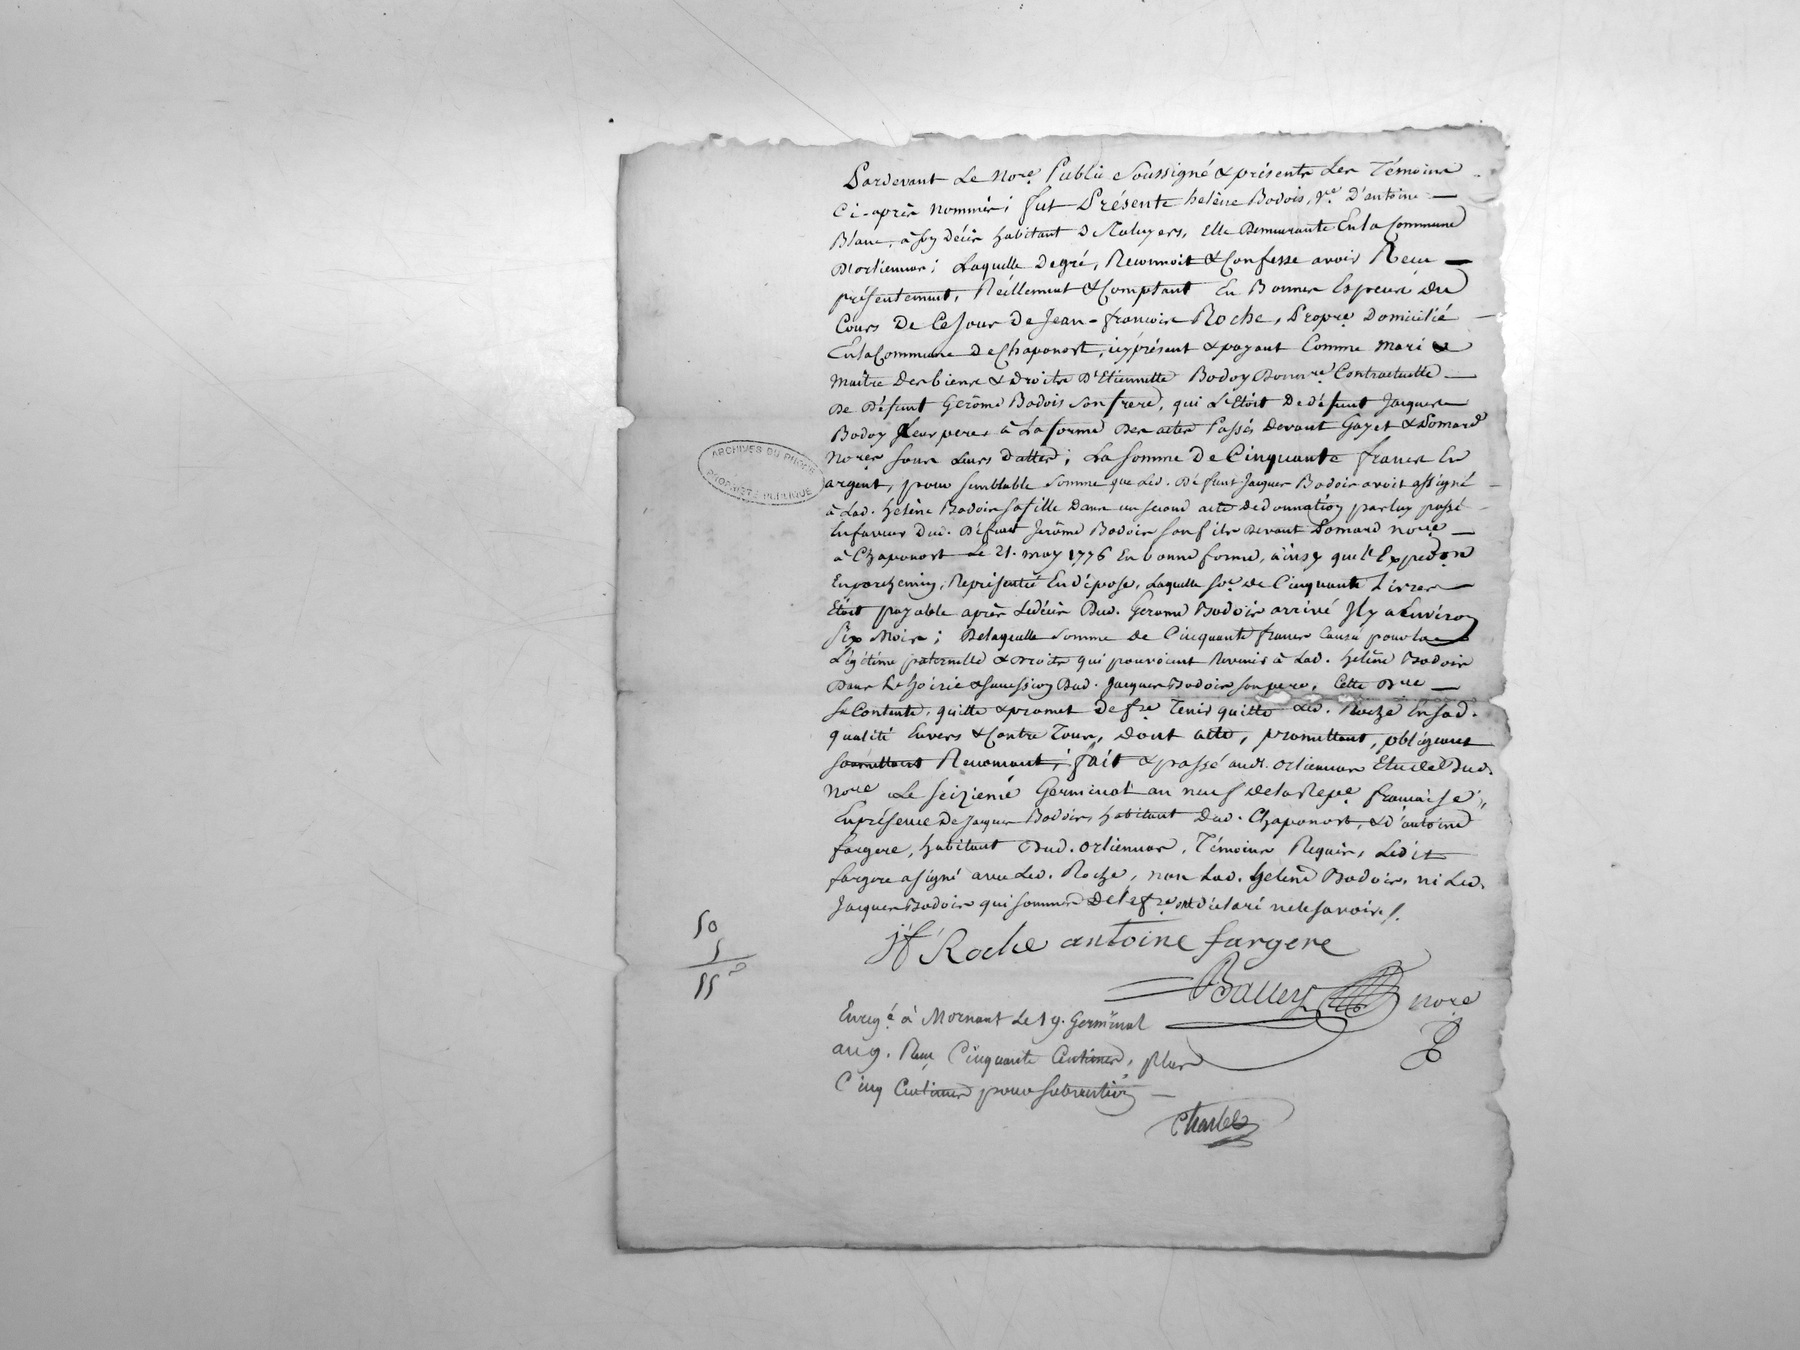 Pardevant Le No.re Public Soussigné & présents Les Témoins
Ci-après nommés; fut Présente helène Bodois, v.e d'antoine
Blanc, à son décès habitant de Taluyers, Elle Demeurante En la Commune
D'orlienas; Laquelle de gré, Reconnoit & Confesse avoir Recu
présentement, Réellement & Comptant En Bonnes Espèces du
Cours de Ce Jour de Jean-francois Roche, Propre. Domicilié
En la Commune De Chaponost, icy présent & payant Comme mari &
Maître des biens & droits D'Etiennette Bodoy Donn.re Contractuelle
De Défunt Gerôme Bodois Son frere, qui L'Etoit De défunt Jacques
Bodoy Leur pere à La forme Des actes Passés devant Gayet & Domard
No.res sous Leurs dattes; La Somme De Cinquante francs En
argent, pour semblable Somme que Led. Défunt Jacques Bodois avoit assigné
à Lad. Helène Bodois sa fille Dans un second acte de donnation par luy passé
En faveur Dud. Défunt Jerôme Bodois son fils devant Domard no.re
à Chaponost Le 21. may 1776 En bonne forme, ainsy que l'Expedon
En parchemin, Représentée En dépose, Laquelle so.e de Cinquante Livres
Etoit payable après Le décès Dud. Gerome Bodois arrivé Il y a Environ
Six Mois; De laquelle somme de Cinquante francs Causé pour la
Légitime paternelle & droits qui pouvoient Revenir à Lad. Helène Bodois
Dans L'hoirie & succession Dud. Jacques Bodois son pere, Cette D.re
se Contente, quitte & promet de f.re Tenir quitte Led. Roche En sad.
qualité Envers & Contre Tous, dont acte, promettant, obligeant
soumettant Renoncant; fait & passé aud. orlienas Etude Dud.
no.re Le seizieme Germinal an neuf de la Repe. française,
En présence De Jacques Bodois habitant Dud. Chaponost, & d'antoine
fargere, habitant Dud. orlienas, Témoins Requis, Ledit
fargere a signé avec Led. Roche, non Lad. helène Bodois, ni Led.
Jacques Bodois qui sommés de le f.re ont déclaré ne le savoir /.
Jf Roche antoine fargere
50
5
55
no.re
Enreg.é à Mornant Le 19. Germinal
an 9. Recu Cinquante Centimes, Plus
Cinq Centimes pour subvention
Charles
ARCHIVES DU RHONE
PROPRIETE PUBLIQUE